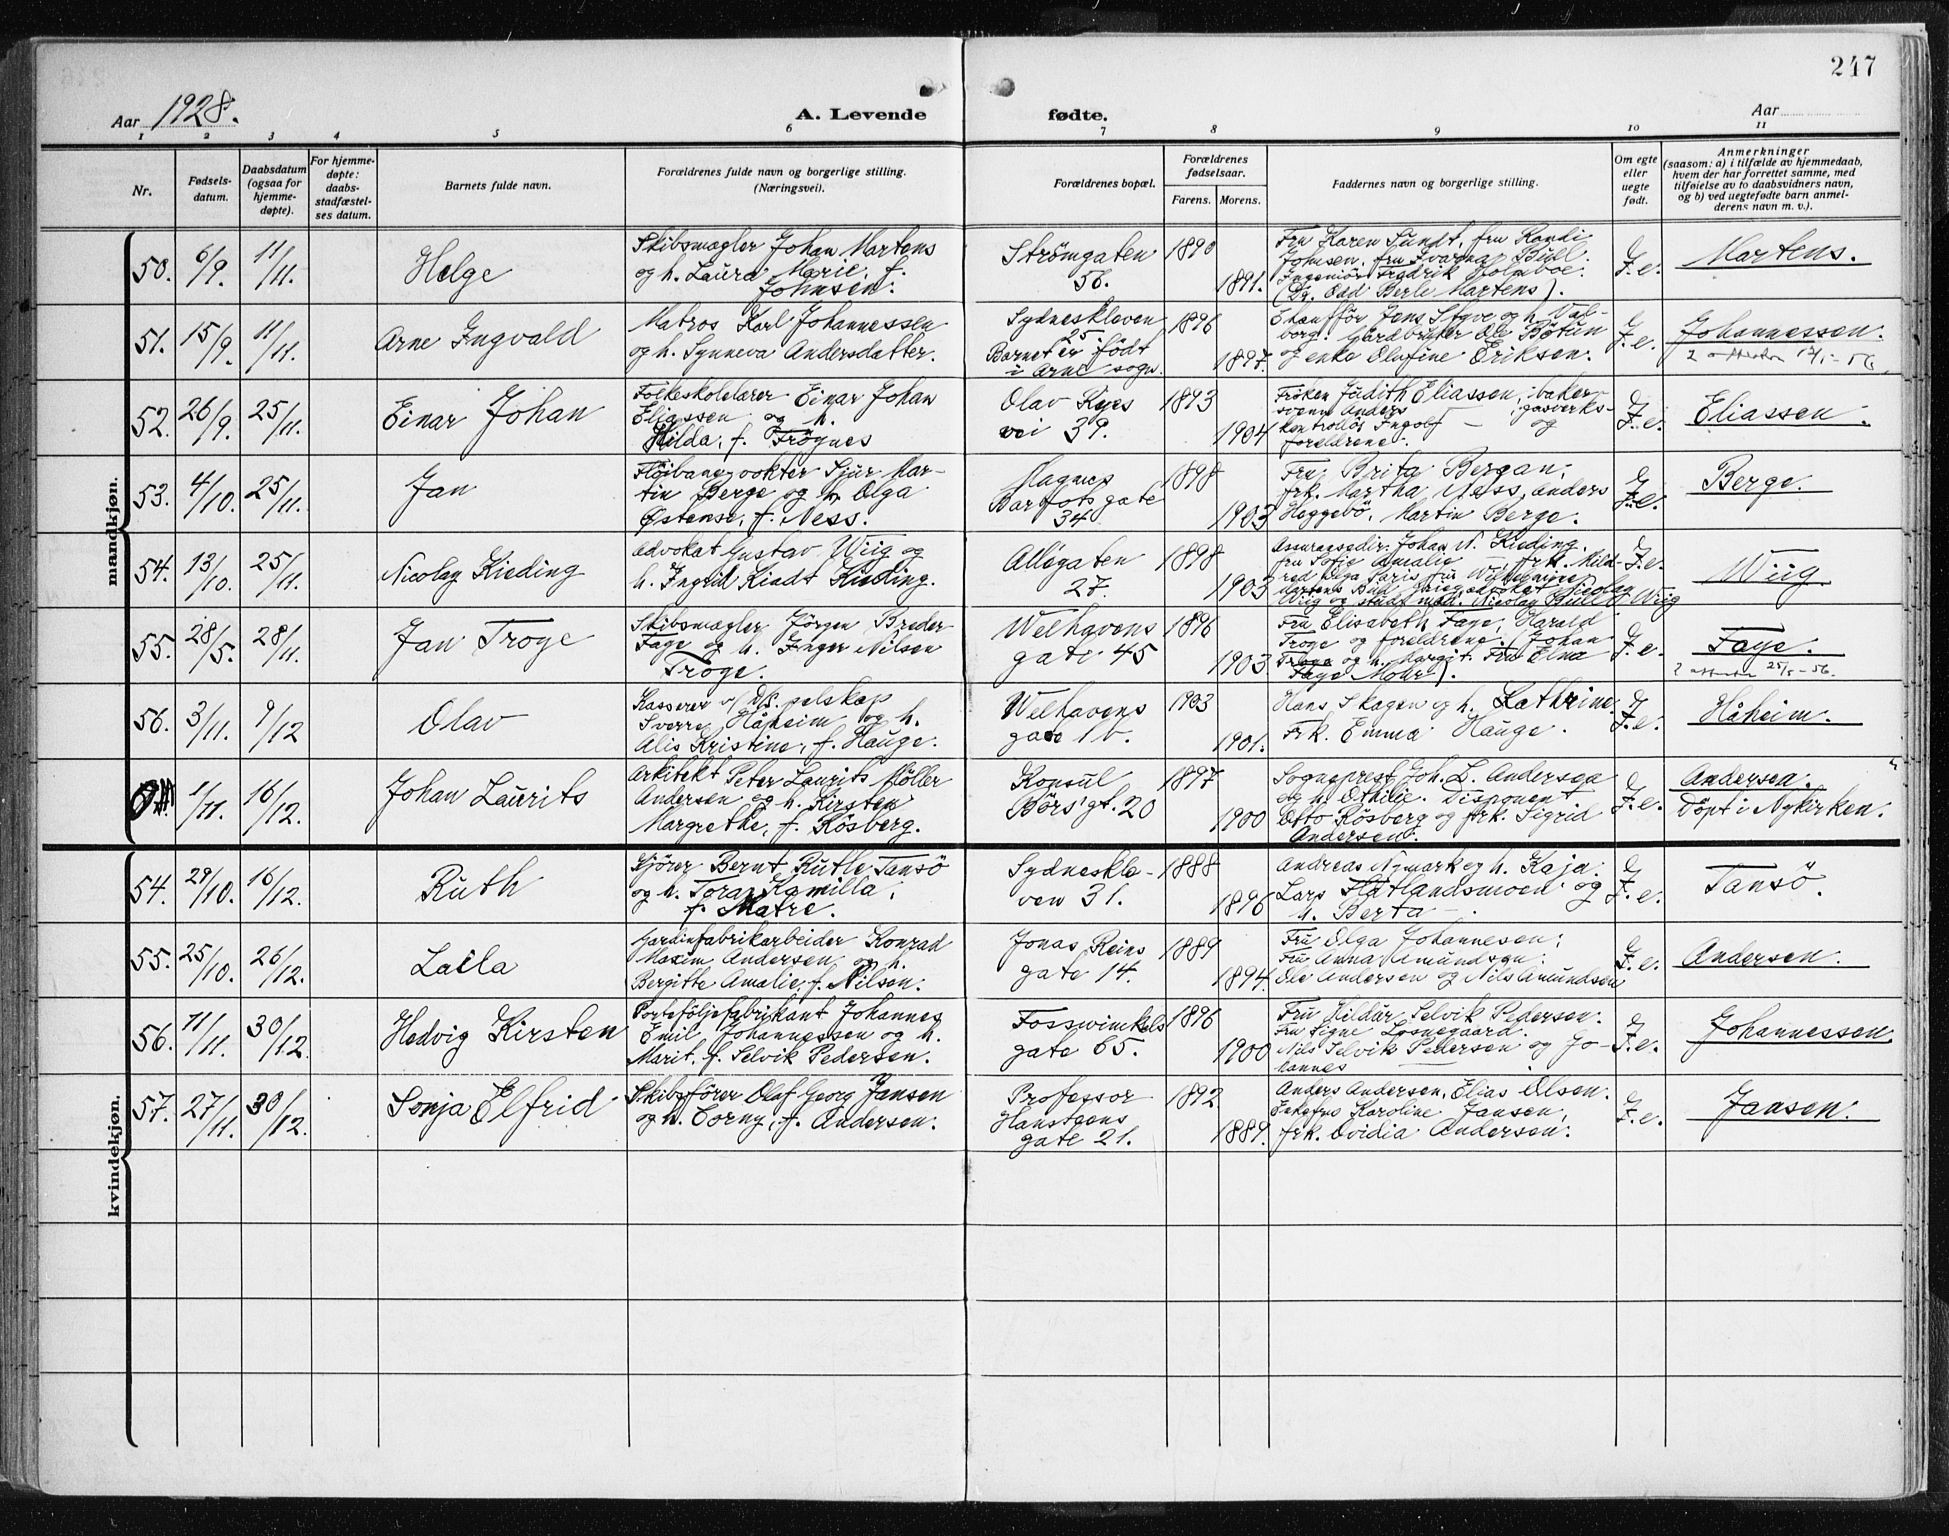 247
Aar 1928.
A. Levende fødte.
Aar
1 2 3 4 5 6 7 8 9 10 11
Nr.
Fødsels-
datum.
Daabsdatum
(ogsaa for
hjemme-
døpte).
For hjemme-
døpte:
daabs-
stadfæstel-
ses datum.
Barnets fulde navn.
Forældrenes fulde navn og borgerlige stilling.
(Næringsvei).
Forældrenes bopæl.
Forældrenes
fødselsaar.
Farens. Morens.
Faddernes navn og borgerlige stilling.
Om egte
eller
uegte
født.
Anmerkninger
(saasom: a) i tilfælde av hjemmedaab,
hvem der har forrettet samme, med
tilføielse av to daabsvidners navn,
og b) ved uegtefødte barn anmel-
derens navn m. v.).
mandkjøn.
50. 6/9. 11/11. Helge
Skibsmægler Johan Martens
og h. Laura Marie, f.
Johnsen.
Strömgaten
56.
1890
1891.
Fru Karen Sundt, fru Randi
Johnsen, fru Bull.
Ingeniör Fredrik Holmboe.
(Dg. Odd Berle Martens).
I. e.
Martens.
51. 15/9. 11/11. Arne Ingvald
Matros Karl Johannessen
og h. Synneva Andersdatter.
Sydneskleven
25.
Barnet er födt
i Arne sogn.
1896
1897.
Chafför Jens Styve og h. Val-
borg. Gårdbruker Ole Bötun
og enke Olufine Eriksen.
I. e.
Johannessen.
52. 26/9. 25/11. Einar Johan
Folkeskolelærer Einar Johan
Eliassen og h.
Hilda, f. Frögnes
Olav Ryes
vei 39.
1893
1904
Fröken Judith Eliassen, baker-
svenn Anders — , gasverks-
kontrollör Ingolf — og
foreldrene.
I. e.
Eliassen.
53. 4/10. 25/11. Jan
Flöibanevokter Sjur Mar-
tin Berge og h. Olga
Østense, f. Ness.
Magnus
Barfots gate
34
1898
1903
Fru Brita Bergan,
frk. Martha Ness, Anders
Heggebö, Martin Berge.
I. e.
Berge.
54. 13/10. 25/11. Nicolay Kieding
Advokat Gustav Wiig og
h. Ingrid Kieding.
Allégaten
27.
1898
1903
Johan N. Kieding,
fru Sofie Amalie — , frk. Mild-
red Olga
Martens Bull advokat Nicolay
Wiig og stud. med. Nicolay Bull Wiig
I. e.
Wiig
55. 28/5. 28/11. Jan Troge
Skibsmægler Jörgen Breder
Faye og h. Inger Nilsen
Troge.
Welhavens
gate 45
1896
1903
Fru Elisabeth Faye, Harald
Troge og foreldrene. (Johan
Troge og h. Margit. Fru Elna
Faye Mohr).
I. e.
Faye.
25/5-56.
56. 3/11. 9/12 Olav
Kasserer v/ selskap
Sverre Håheim og h.
Alis Kristine, f. Hauge.
Welhavens
gate 1 b.
1903
1901.
Hans Skagen og h. Kathrine.
Frk. Emma Hauge.
I. e.
Håheim.
1/11. 16/12. Johan Laurits
Arkitekt Peter Laurits Möller
Andersen og h. Kirsten
Margrethe, f. Kösberg.
Konsul
Börs' gt. 20
1897
1900
Sogneprest Joh. L. Andersen
og h. Othilie. Disponent
Otto Kösberg og frk. Sigrid
Andersen.
I. e.
Andersen.
Döpt i Nykirken.
kvindekjøn.
54. 29/10. 16/12. Ruth
Kjörer Bernt Rutle Tansö
og h. Tora Kamilla,
f. Matre.
Sydneskle-
ven 31.
1888
1896
Andreas Nymark og h. Kaja.
Lars Flatlandsmoen og
h. Berta — .
I. e.
Tansö.
55. 25/10. 26/12. Laila
Gardinfabrikarbeider Konrad
Maxim Andersen og h.
Bergitte Amalie, f. Nilsen.
Jonas Reins
gate 14.
1889
1894.
Fru Olga Johannesen,
Fru Anna Amundsen,
Ole Andersen og Nils Amundsen
I. e.
Andersen.
56. 11/11. 30/12. Hedvig Kirsten
Porteföljefabrikant Johannes
Emil Johannessen og h.
Marit, f. Selvik Pedersen.
Fosswinkels
gate 65.
1896
1900
Fru Hildur Selvik Pedersen.
Fru Signe Losnegaard.
Nils Selvik Pedersen og Jo-
hannes —
I. e.
Johannessen.
57. 27/11. 30/12. Sonja Elfrid
Skibsförer Olaf Georg Jansen
og h. Corny, f. Andersen.
Professor
Hansteens
gate 21.
1892
1889.
Anders Andersen, Elias Olsen.
Enkefru Karoline Jansen,
frk. Ovidia Andersen.
I. e.
Jansen.